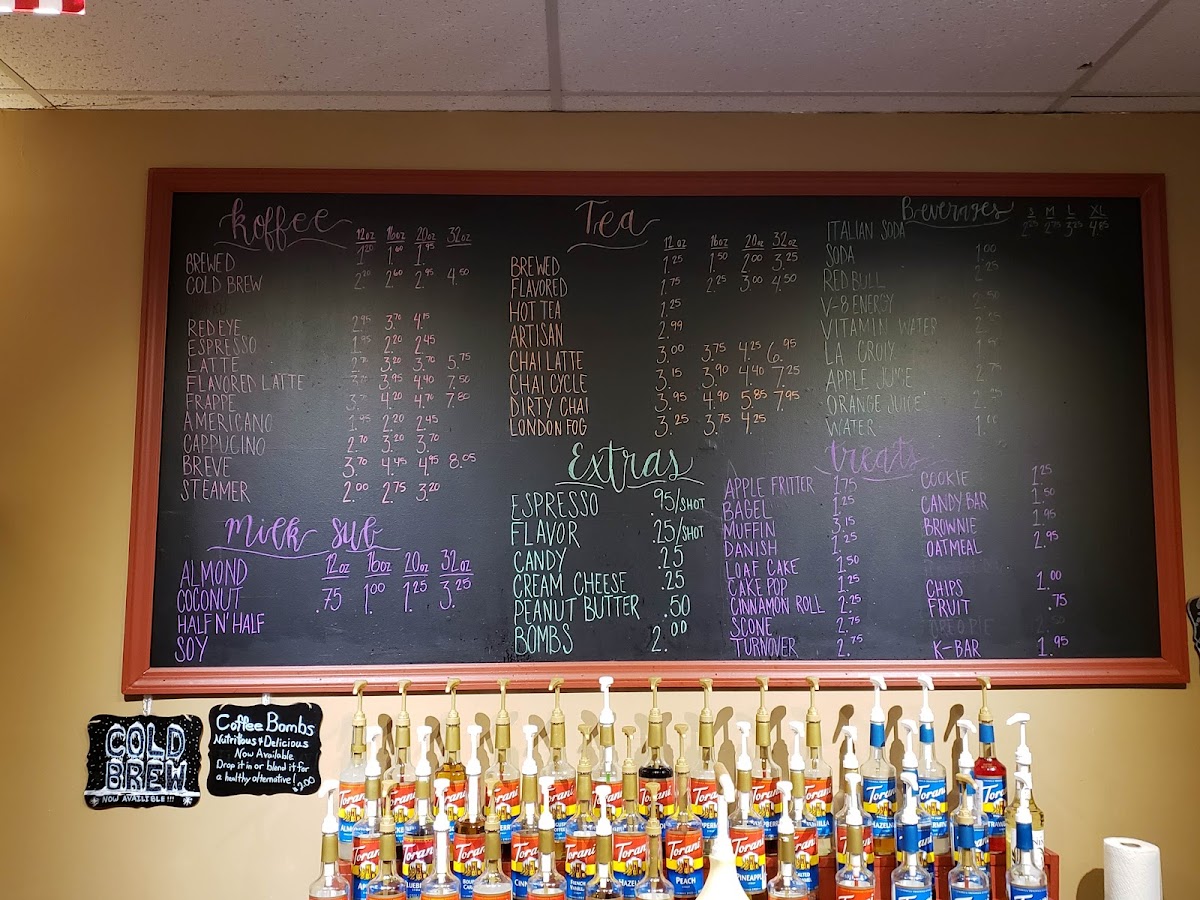 koffee
12oz 16oz 20oz 32oz
BREWED 1.20 1.60 1.95
COLD BREW 2.20 2.60 2.95 4.50
RED EYE 2.95 3.70 4.15
ESPRESSO 1.95 2.20 2.45
LATTE 3.20 3.70 5.75
FLAVORED LATTE 3.95 4.40 7.50
FRAPPE 4.20 4.70 7.80
AMERICANO 1.95 2.20 2.45
CAPPUCINO 2.70 3.20 3.70
BREVE 3.70 4.45 4.95 8.05
STEAMER 2.00 2.75 3.20
Milk Sub
12oz 16oz 20oz 32oz
ALMOND
COCONUT .75 1.00 1.25 3.25
HALF N' HALF
SOY
Tea
12oz 16oz 20oz 32oz
BREWED 1.25 1.50 2.00 3.25
FLAVORED 1.75 2.25 3.00 4.50
HOT TEA 1.25
ARTISAN 2.99
CHAI LATTE 3.00 3.75 4.25 6.95
CHAI CYCLE 3.15 3.90 4.40 7.25
DIRTY CHAI 3.95 4.90 5.85 7.95
LONDON FOG 3.25 3.75 4.25
Extras
ESPRESSO .95/SHOT
FLAVOR .25/SHOT
CANDY .25
CREAM CHEESE .25
PEANUT BUTTER .50
BOMBS 2.00
Beverages
S M L XL
ITALIAN SODA 2.25 2.75 3.25 4.85
SODA 1.00
RED BULL 2.25
V-8 ENERGY
VITAMIN WATER
LA CROIX
APPLE JUICE 2.75
ORANGE JUICE
WATER 1.00
treats
APPLE FRITTER 1.75
BAGEL 1.25
MUFFIN 3.15
DANISH 1.25
LOAF CAKE 1.50
CAKE POP 1.25
CINNAMON ROLL 2.25
SCONE 2.75
TURNOVER 2.75
COOKIE 1.25
CANDY BAR 1.50
BROWNIE 1.95
OATMEAL 2.95
CHIPS 1.00
FRUIT .75
K-BAR 1.95
COLD
BREW
NOW AVAILIBLE!!!
Coffee Bombs
Nutritious & Delicious
Now Available
Drop it in or blend it for
a healthy alternative!
$2.00
Torani
Torani
Torani
Torani
Torani
Torani
Torani
Torani
PEACH
Torani
PINEAPPLE